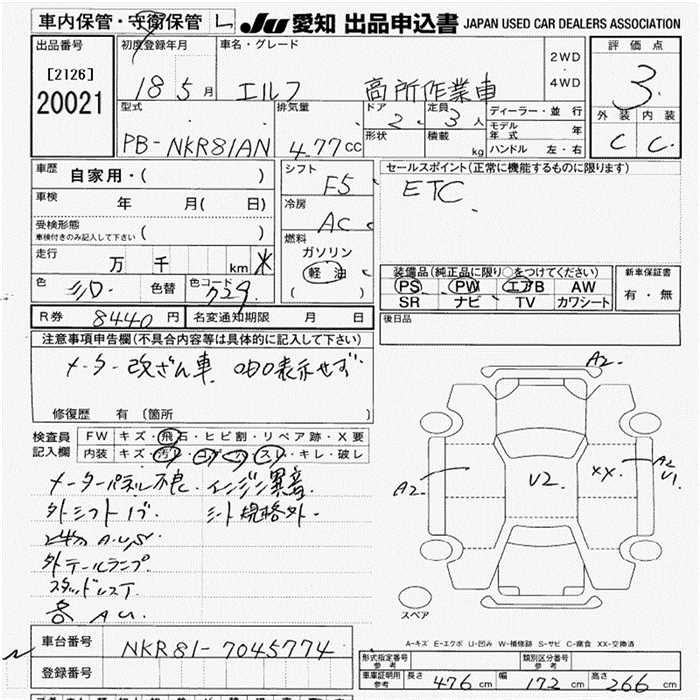 車内保管・守衛保管
JU 愛知 出品申込書 JAPAN USED CAR DEALERS ASSOCIATION
出品番号 初度登録年月 車名・グレード 2WD・4WD 評価点
[2126]
20021
18 5月 エルフ 高所作業車 3.
型式 排気量 ドア 2 定員 3人 ディーラー・並行 外装 内装
PB-NKR81AN 4.77cc 形状 積載 kg モデル年式 年 C C
ハンドル 左・右
車歴 自家用・( ) シフト F5 セールスポイント(正常に機能するものに限ります)
ETC
車検 年 月( 日) 冷房 AC
受検形態 車検付きのみ記入して下さい ( ) 燃料
ガソリン
走行 万 千 km 軽油
( )
装備品(純正品に限り○をつけてください) 新車保証書
PS PW エアB AW 有・無
SR ナビ TV カワシート
色 シロ 色替 色コード 729
R券 8440円 名変通知期限 月 日 後日品
注意事項申告欄(不具合内容等は具体的に記入して下さい)
メーター改ざん車
修復歴 有 〔箇所 〕
検査員記入欄 FW キズ・飛石・ヒビ割・リペア跡・X要
内装 キズ・汚レ・コゲ・穴・スレ・キレ・破レ
メーターパネル不良・エンジン異音
外シフトノブ・ シート規格外・
外テールランプ・
スタッドレスT
各AU.
A2
A2 U2 XX A2 U1
スペア
A-キズ E-エクボ U-凹み W-補修跡 S-サビ C-腐食 XX-交換済
車台番号 NKR81-7045774
登録番号
形式指定番号 参考 類別区分番号 参考
車庫証明用 参考 長さ 476cm 幅 172cm 高さ 266cm